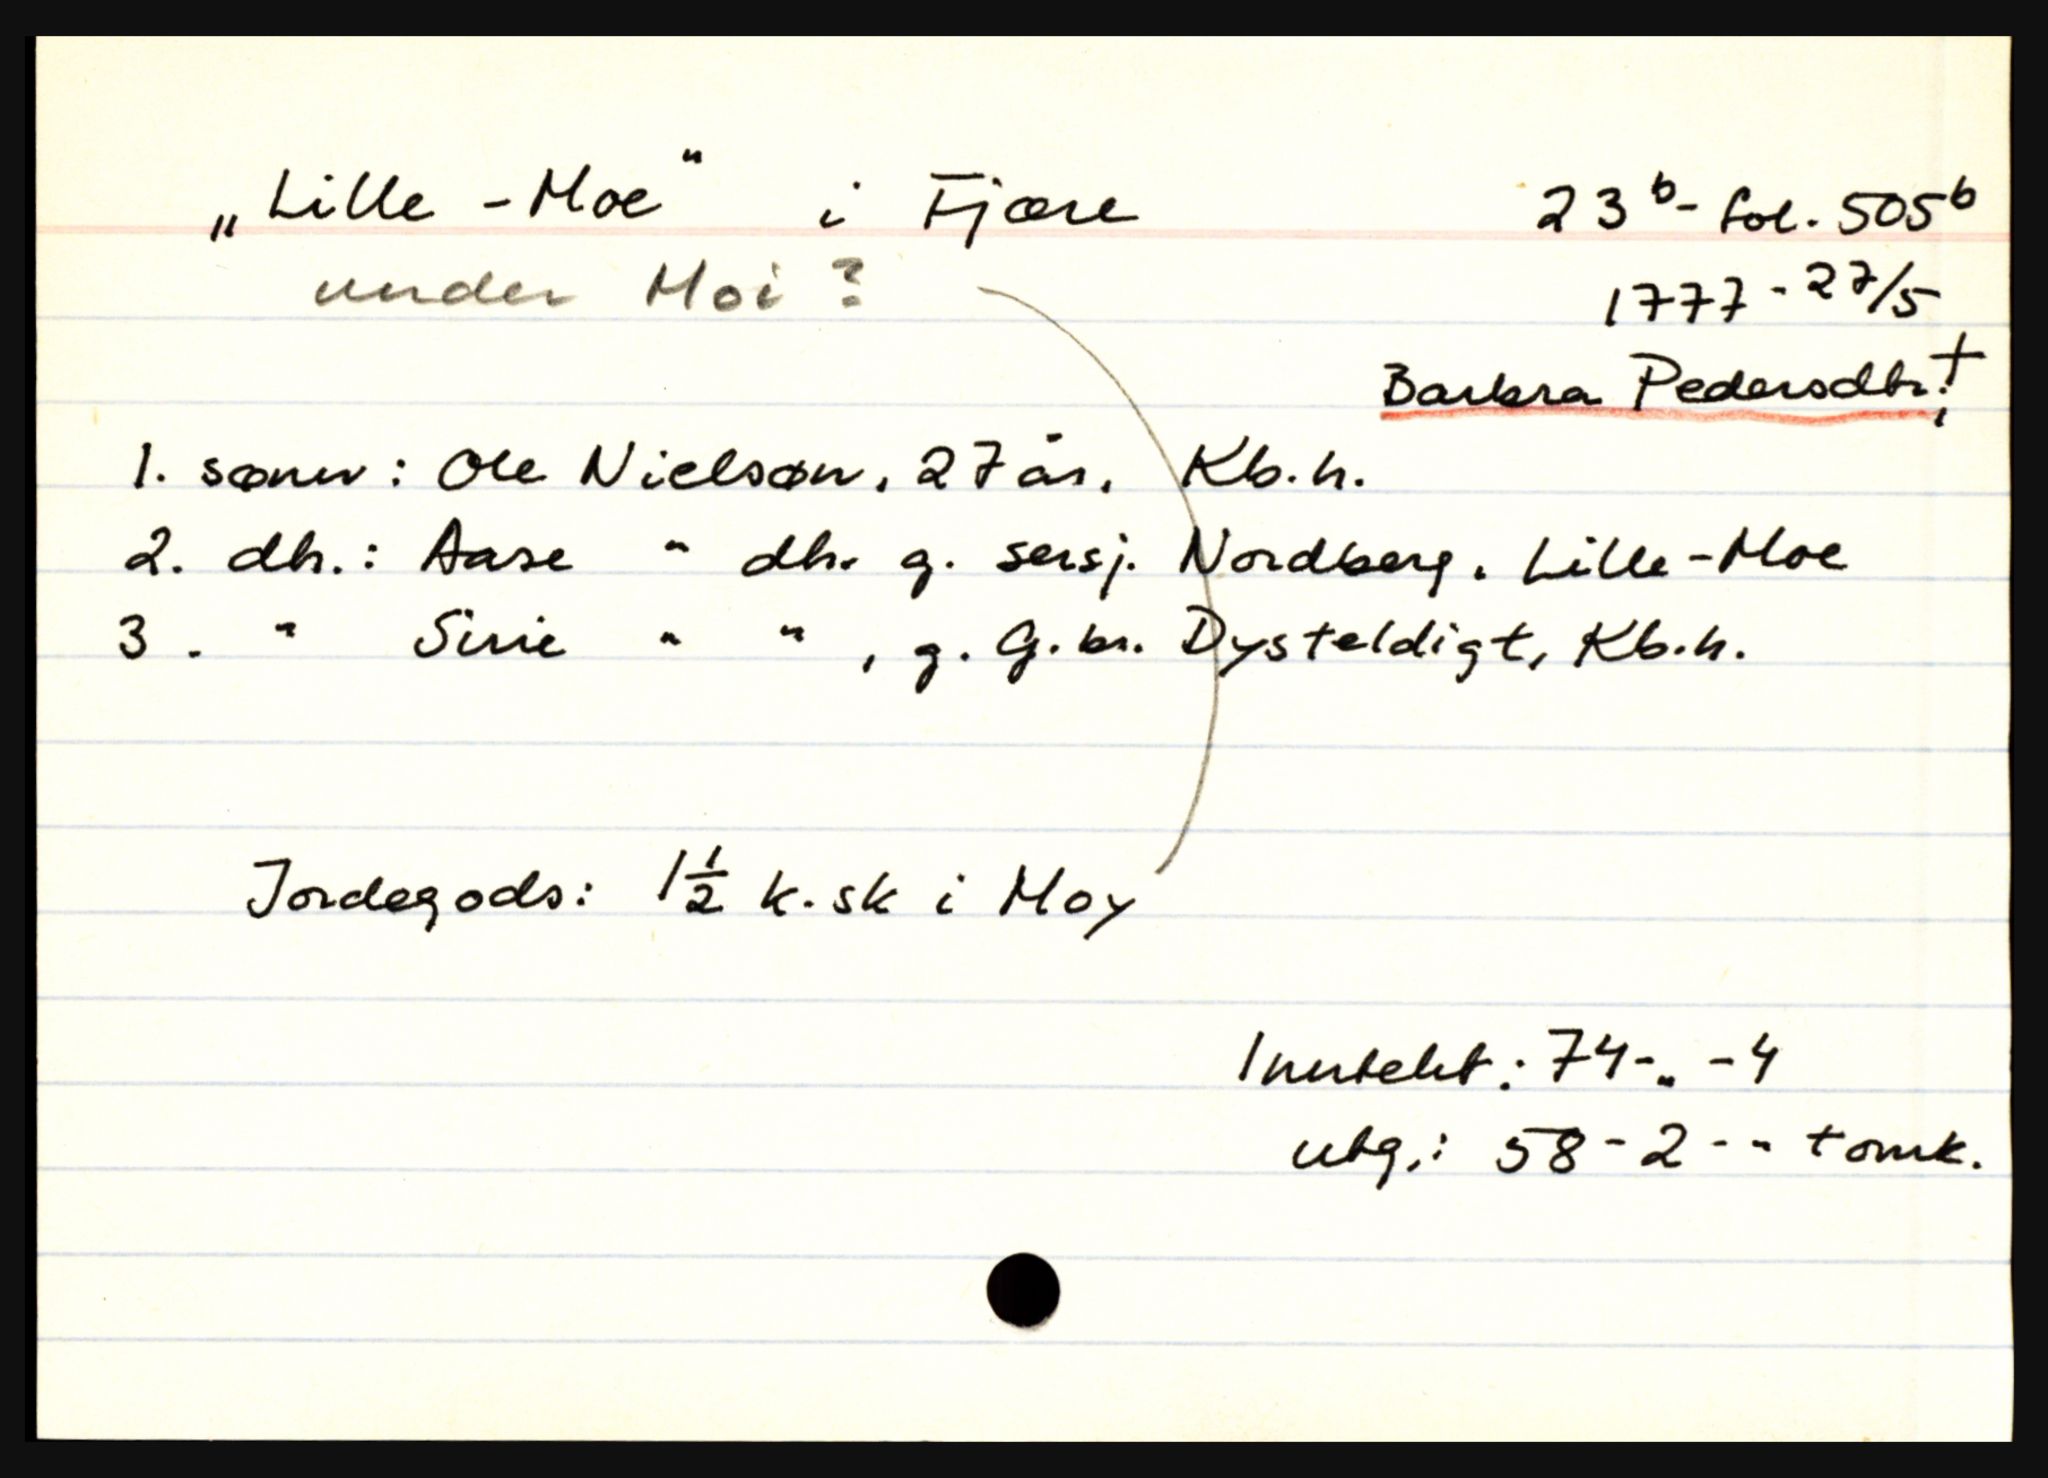 „Lille - Moe" i Fjære
23ᵇ - fol. 505ᵇ
under Moi?
1777 - 27/5
Barbra Pedersdtr. †
1. sønn: Ole Nielsøn, 27 år, Kb.h.
2. dtr.: Aase " dtr. g. sersj. Nordberg. Lille-Moe
3. " Sirie " ", g. G.br. Dysteldigt, Kb.h.
Jordegods: 1½ k.sk i Moy
Inntekt: 74-„ -4
utg.: 58 - 2 - " + omk.